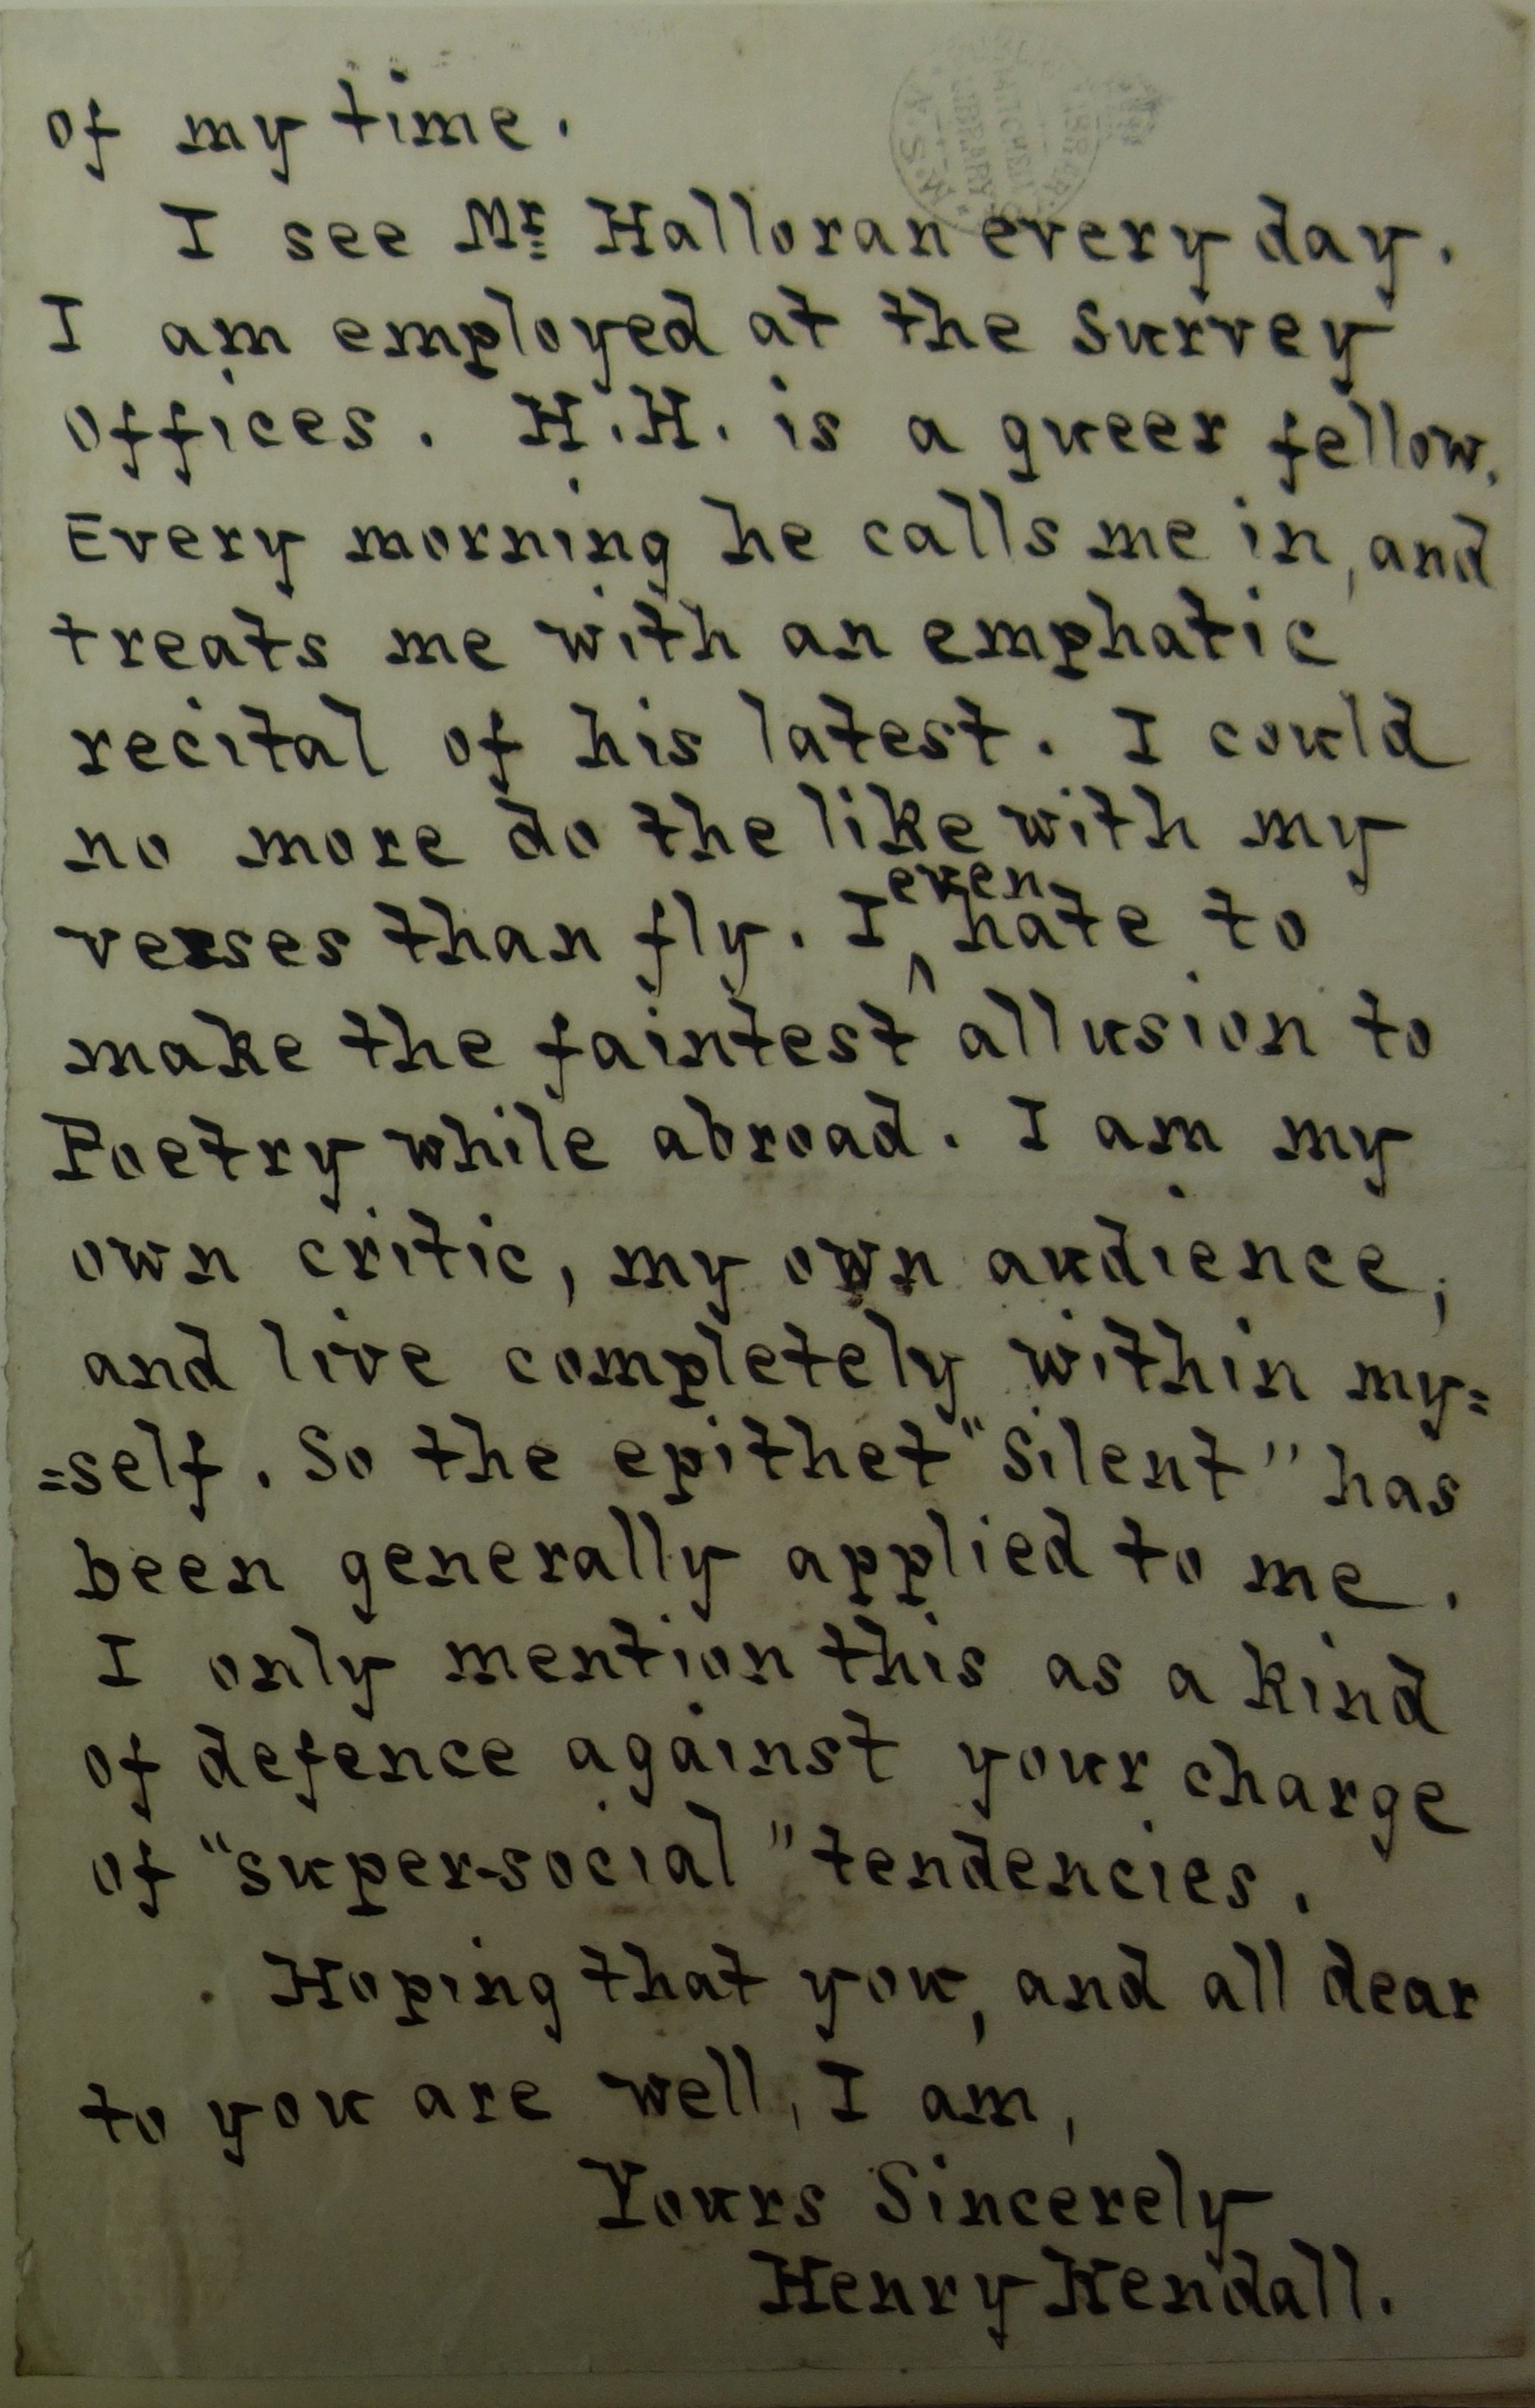 of my time.
I see Mr Halloran every day.
I am employed at the Survey
Offices. H.H. is a queer fellow.
Every morning he calls me in, and
treats me with an emphatic
recital of his latest. I could
no more do the like with my
verses than fly. I even hate to
make the faintest allusion to
Poetry while abroad. I am my
own critic, my own audience;
and live completely within my=
=self. So the epithet "Silent" has
been generally applied to me.
I only mention this as a kind
of defence against your charge
of "super-social" tendencies.
Hoping that you, and all dear
to you are well, I am,
Yours Sincerely
Henry Kendall.
MITCHELL
LIBRARY
N.S.W.